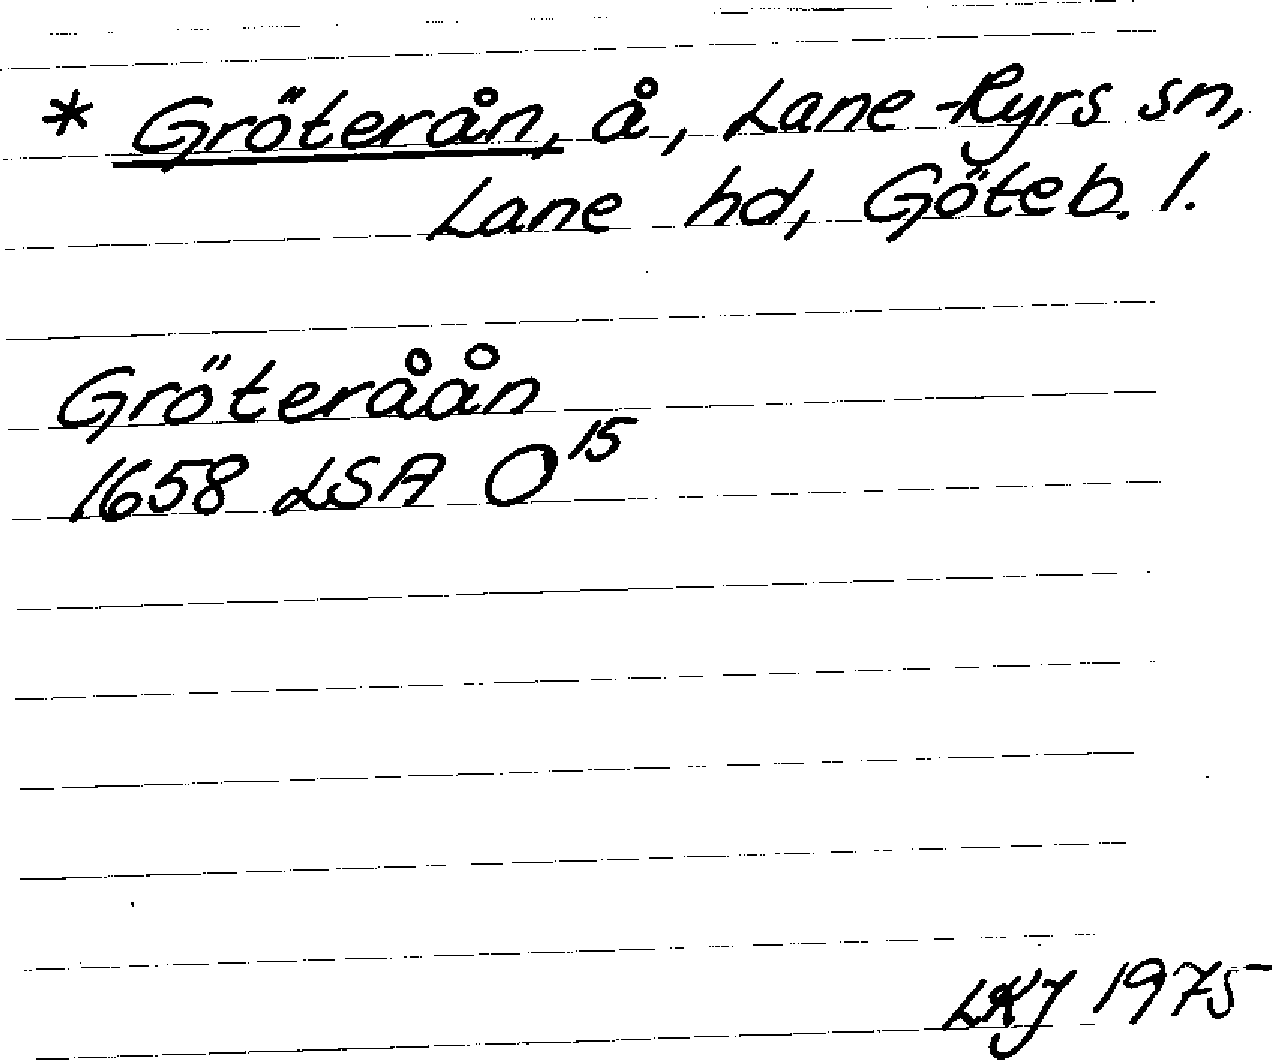 * Gröterån, å, Lane-Ryrs sn,
Lane hd, Göteb. l.
Gröteråån
1658 LSA O¹⁵
LKJ 1975